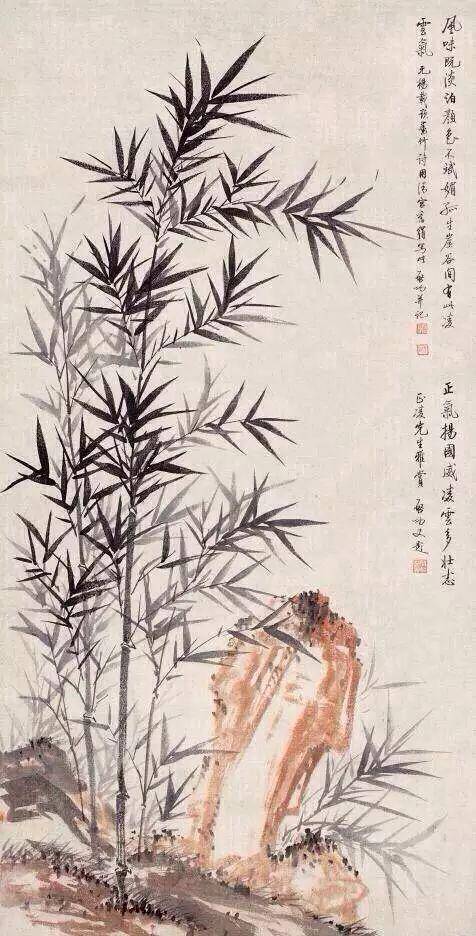 風味既淡泊顏色不斌媚孤生崖谷間有此凌
雲氣 元楊載題墨竹詩用清宮舊絹寫此 啟功并記
正氣揚國威凌雲多壯志
正凌先生雅賞 啟功又題